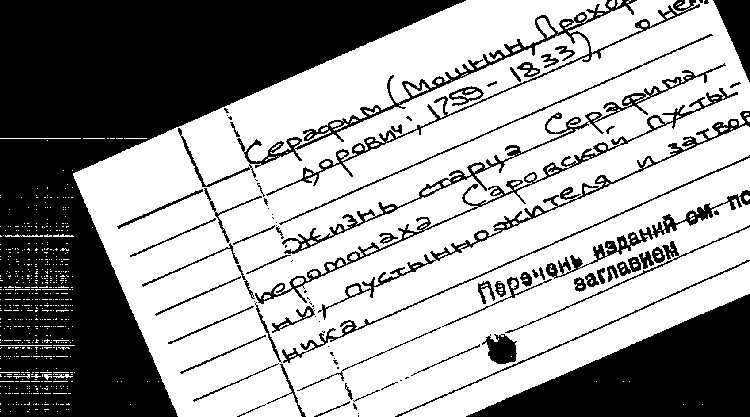 Серафим (Мошнин, Прохор
о нем
дорович; 1759-1833),
Жизнь старца Серафима,
иеромонаха Саровской пусты-
ни, пустынножителя и затвор
ника.
Перечень изданий см. по
заглавием